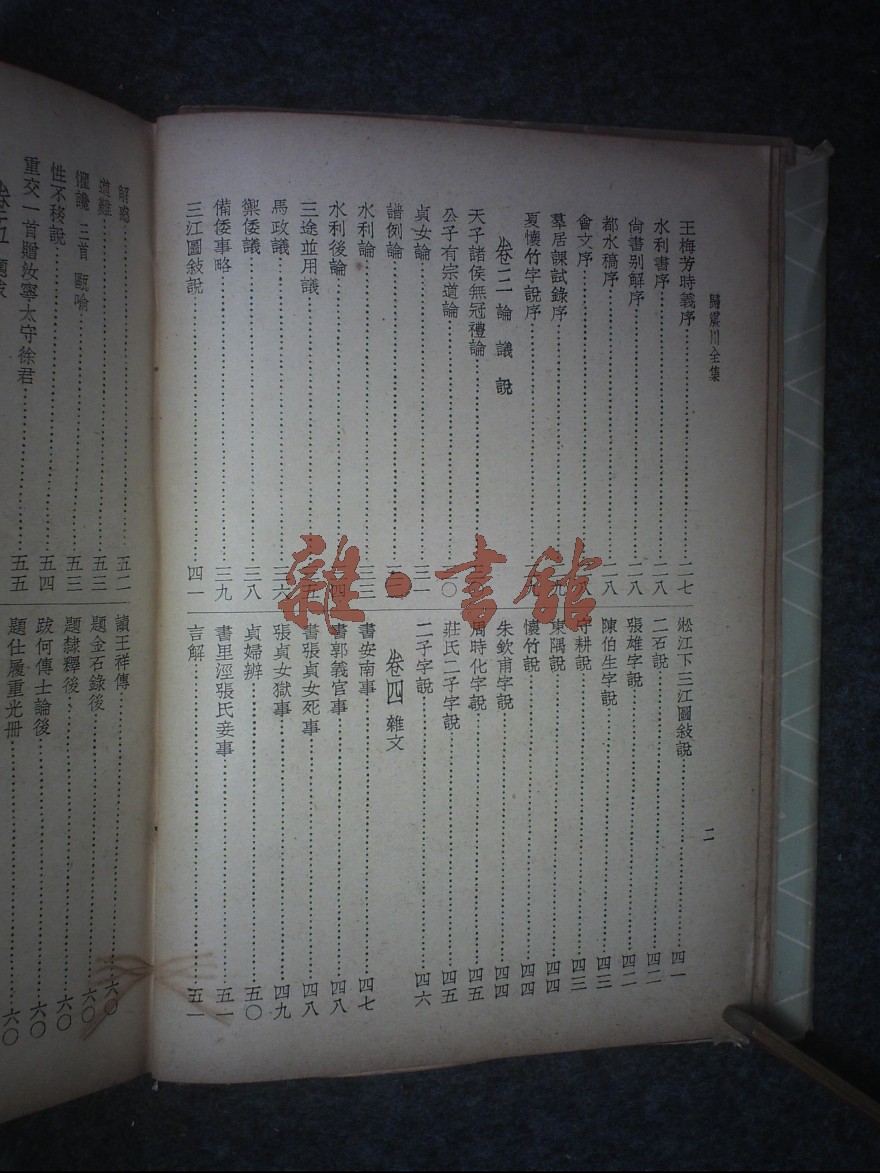 歸震川全集
二
王梅芳時義序⋯⋯二七
水利書序⋯⋯二八
尙書別解序⋯⋯二八
都水稿序⋯⋯二八
會文序⋯⋯八
羣居課試錄序⋯⋯九
夏懷竹字說序
卷三 論 議 說
天子諸侯無冠禮論
公子有宗道論⋯⋯〇
貞女論⋯⋯三一
譜例論
水利論⋯⋯三三
水利後論⋯⋯四
三途並用議
馬政議⋯⋯三六
禦倭議⋯⋯三八
備倭事略⋯⋯三九
三江圖敍說⋯⋯四一
淞江下三江圖敍說⋯⋯四一
二石說⋯⋯四二
張雄字說⋯⋯四二
陳伯生字說⋯⋯四三
守耕說⋯⋯四三
東隅說⋯⋯四四
懷竹說⋯⋯四四
朱欽甫字說⋯⋯四四
周時化字說⋯⋯四五
莊氏二子字說⋯⋯四五
二子字說⋯⋯四六
卷四 雜文
書安南事⋯⋯四七
書郭義官事⋯⋯四八
書張貞女死事⋯⋯四八
張貞女獄事⋯⋯四九
貞婦辨⋯⋯五〇
書里涇張氏妾事⋯⋯五一
言解⋯⋯五一
解惑⋯⋯五二
道難⋯⋯五三
懼讒 三首 甌喻⋯⋯五三
性不移說⋯⋯五四
重交一首贈汝寧太守徐君⋯⋯五五
讀王祥傳⋯⋯六〇
題金石錄後⋯⋯六〇
題隸釋後⋯⋯六〇
跋何傳士論後⋯⋯六〇
題仕履重光冊⋯⋯六〇
雜·書館